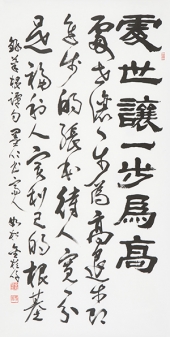 處世讓一步為高
處世讓一步為高退步即
進步的張本待人寬一分
是福利人實利己的根基
錄菜根譚句